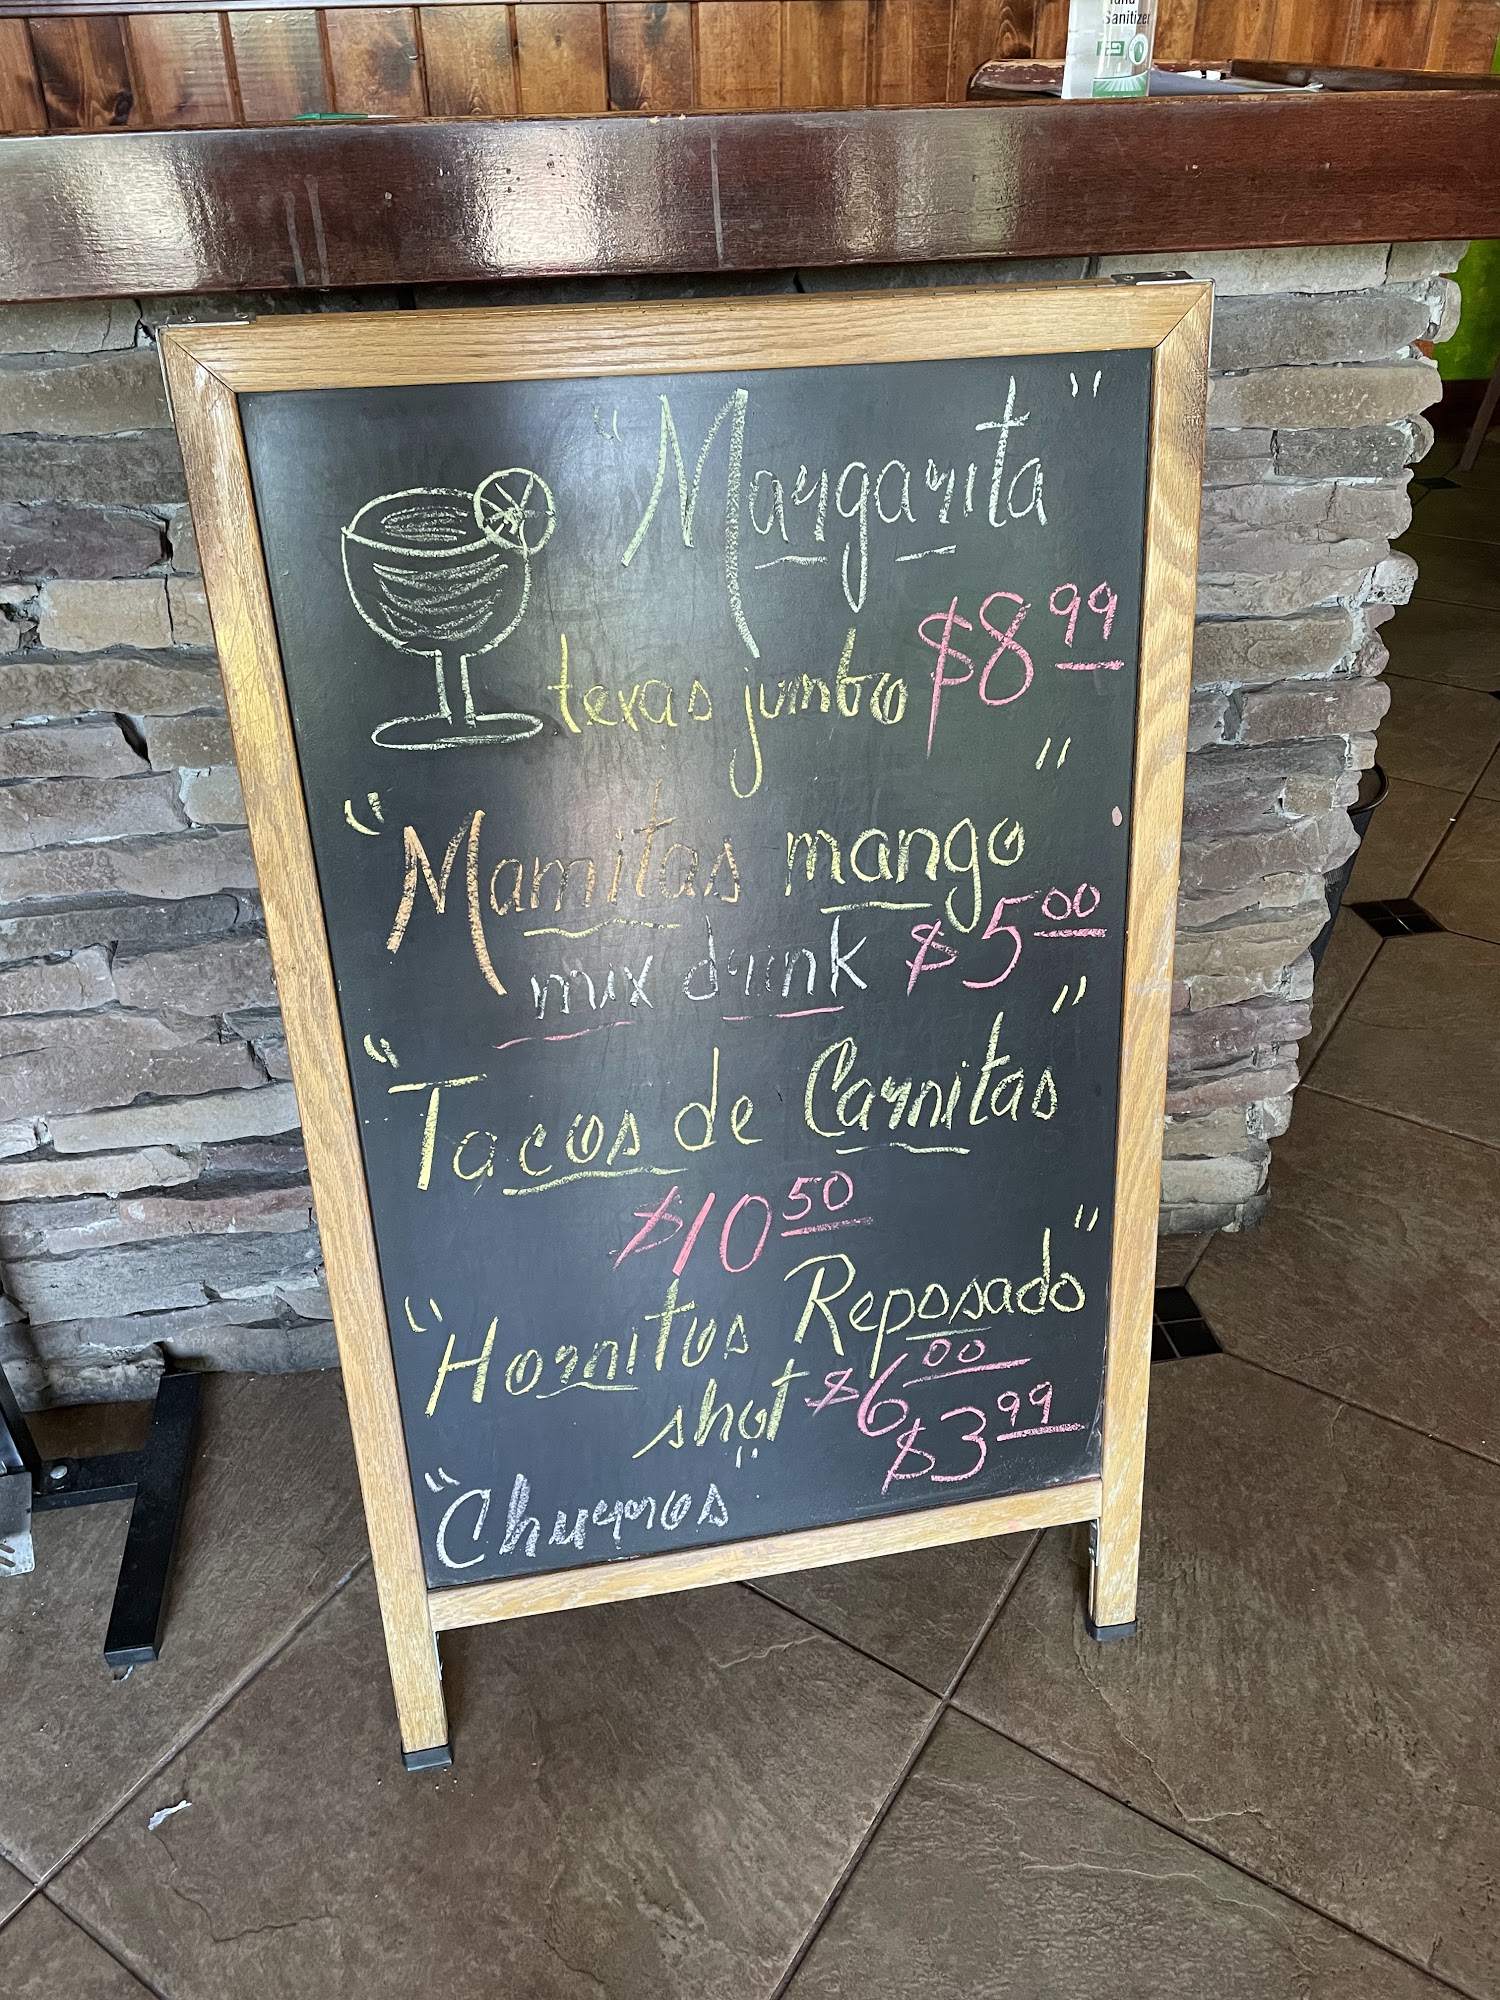 Hand
Sanitizer
"Margarita"
texas jumbo $8.99
"Mamitas mango"
mix drink $5.00
"Tacos de Carnitas"
$10.50
"Hornitos Reposado"
shot $6.00
"Churros" $3.99